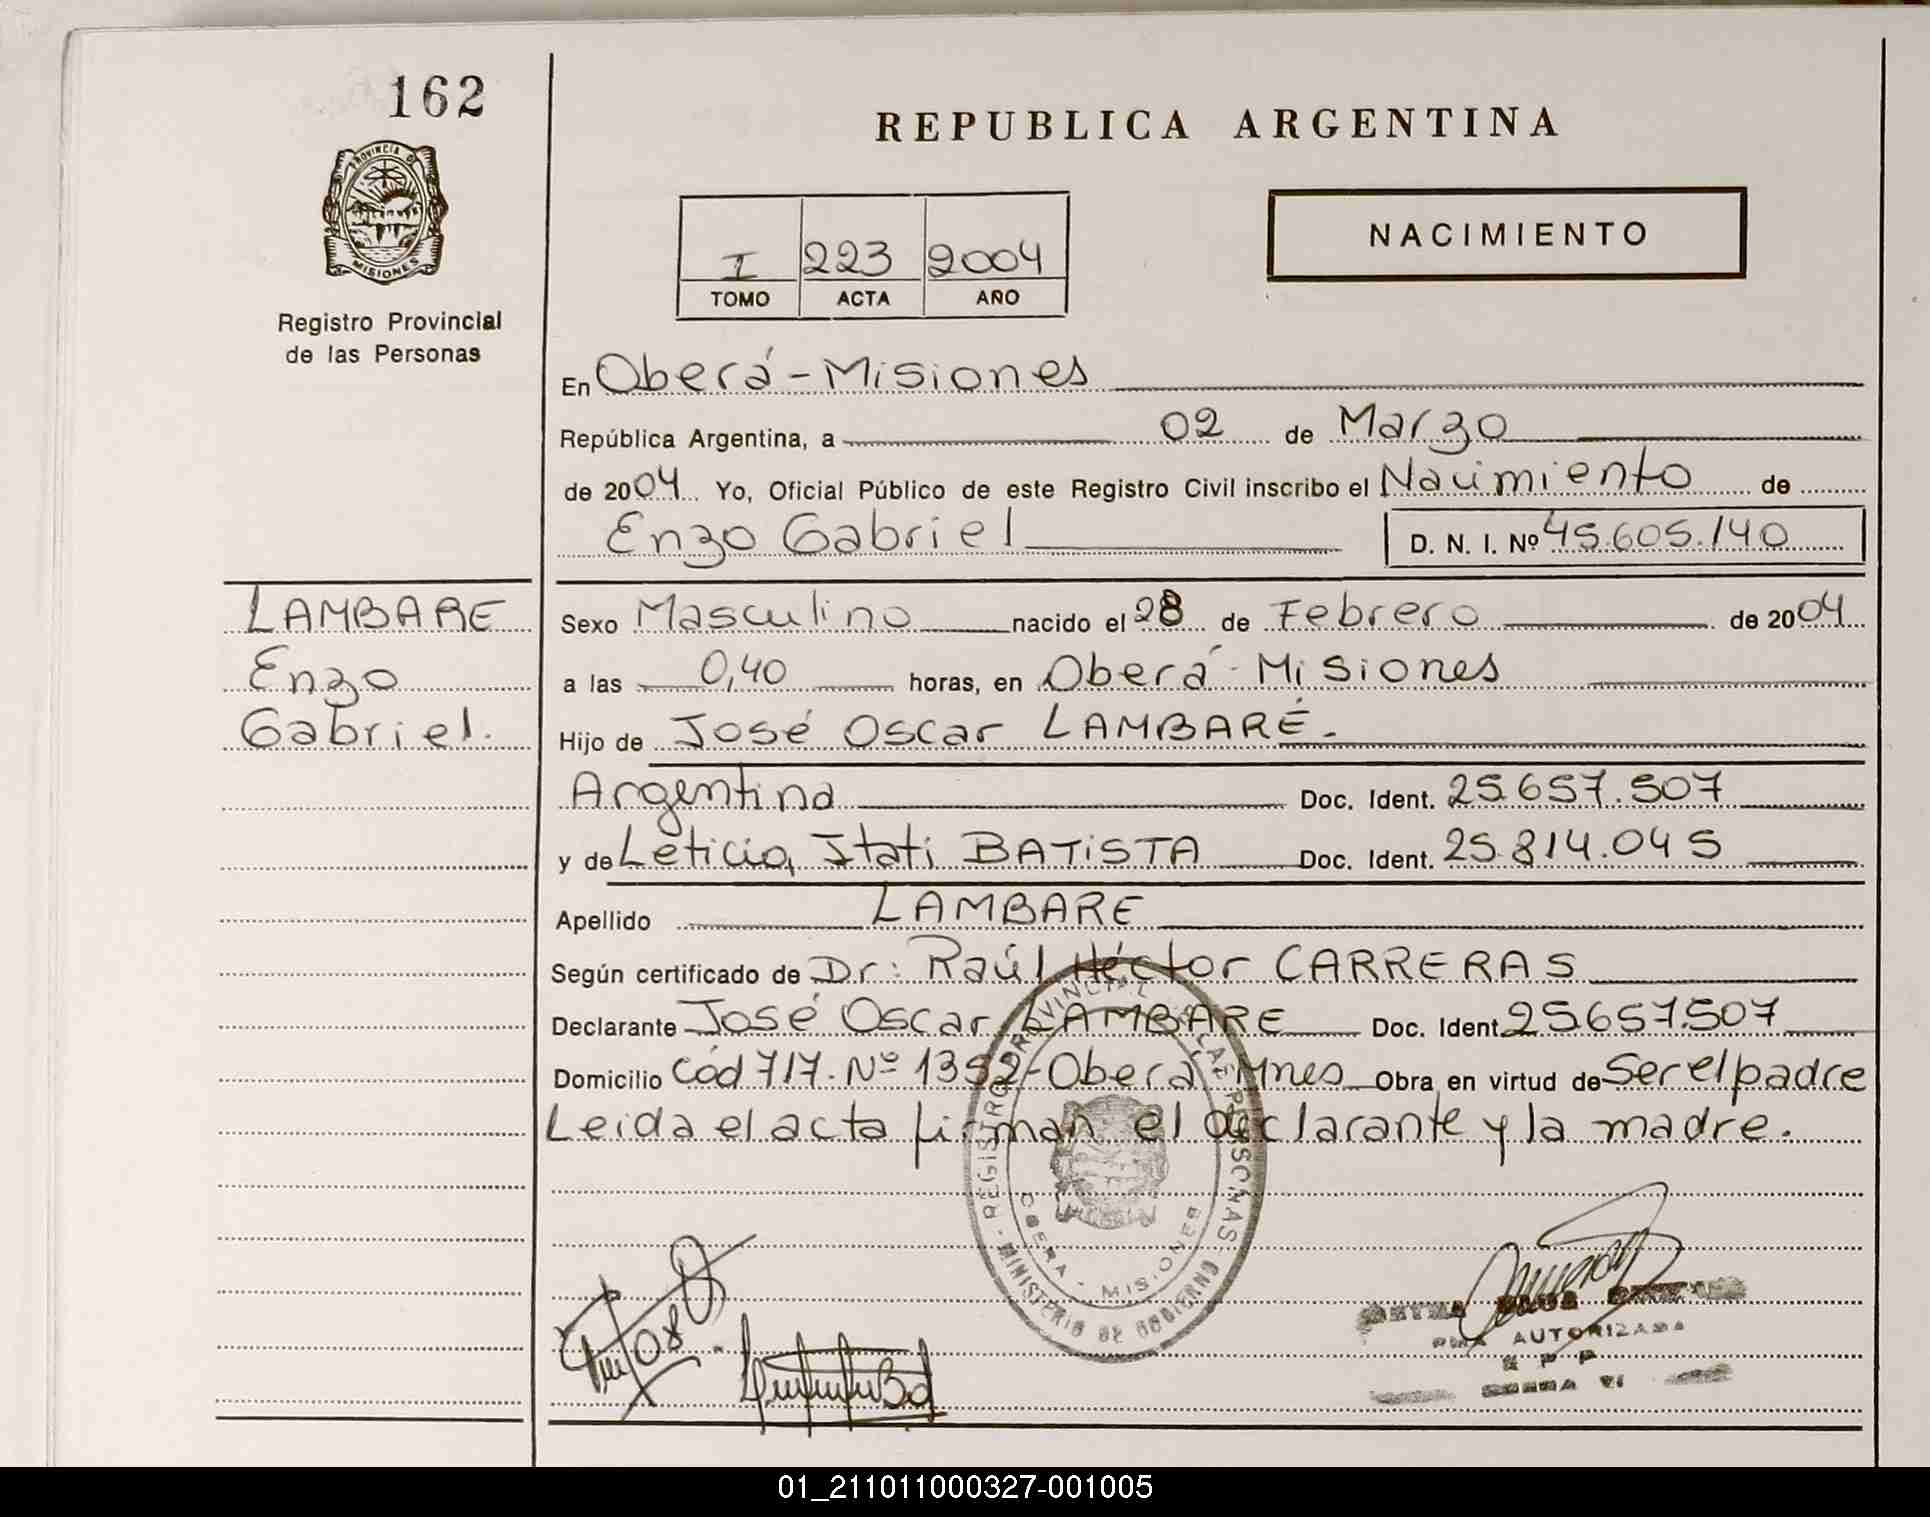 162
REPUBLICA ARGENTINA
PROVINCIA DE
MISIONES
Registro Provincial
de las Personas
I 223 2004
TOMO ACTA AÑO
NACIMIENTO
En Oberá - Misiones
República Argentina, a 02 de Marzo
de 2004 Yo, Oficial Público de este Registro Civil inscribo el Nacimiento de
Enzo Gabriel D. N. I. Nº 45.605.140
LAMBARE
Enzo
Gabriel.
Sexo Masculino nacido el 28 de Febrero de 2004
a las 0,40 horas, en Oberá - Misiones
Hijo de José Oscar LAMBARÉ.
Argentina Doc. Ident. 25.657.507
y de Leticia Itati BATISTA Doc. Ident. 25.814.045
Apellido LAMBARE
Según certificado de Dr: Raúl Héctor CARRERAS
Declarante José Oscar LAMBARE Doc. Ident. 25.657.507
Domicilio Cód 717. Nº 1392 - Oberá Mnes Obra en virtud de Ser el padre
Leida el acta firman el declarante y la madre.
REGISTRO PROVINCIAL DE LAS PERSONAS
MINISTERIO DE GOBIERNO
OBERA - MISIONES
AUTORIZADA
01_211011000327-001005